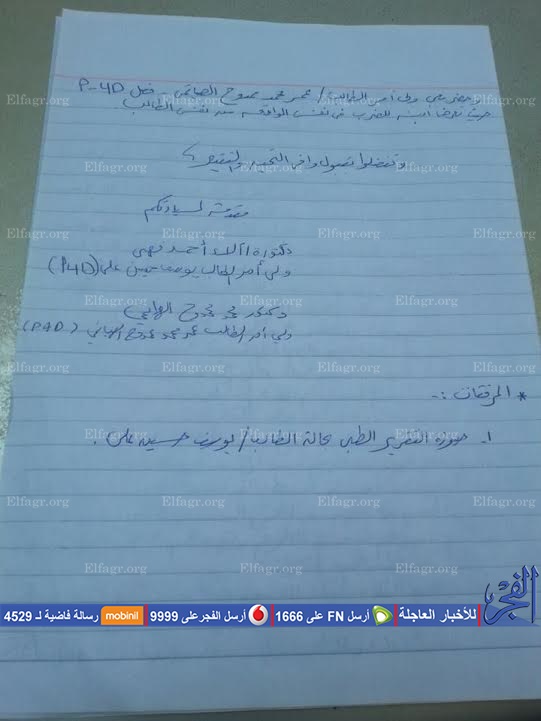 حضر معي ولي أمر الطالب / عمر محمد ممدوح الصافي - فصل P-4D
حيث تعرض ابنه للضرب في نفس الواقعة من نفس الطالب
وتفضلوا بقبول وافر التحية والتقدير
مقدمة لسيادتكم
دكتورة / آلاء أحمد فهمي
ولي أمر الطالب يوسف حسين علي (P4D)
دكتور محمد ممدوح
ولي أمر الطالب عمر محمد ممدوح (P4D)
* المرفقات :-
1. صورة التقرير الطبي حالة الطالب / يوسف حسين علي .
الفجر
للأخبار العاجلة أرسل FN على 1666 أرسل الفجر على 9999 mobinil رسالة فاضية لـ 4529
Elfagr.org